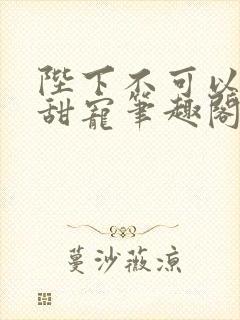 陛下不可以
甜寵筆趣閣
蔓沙薇涼